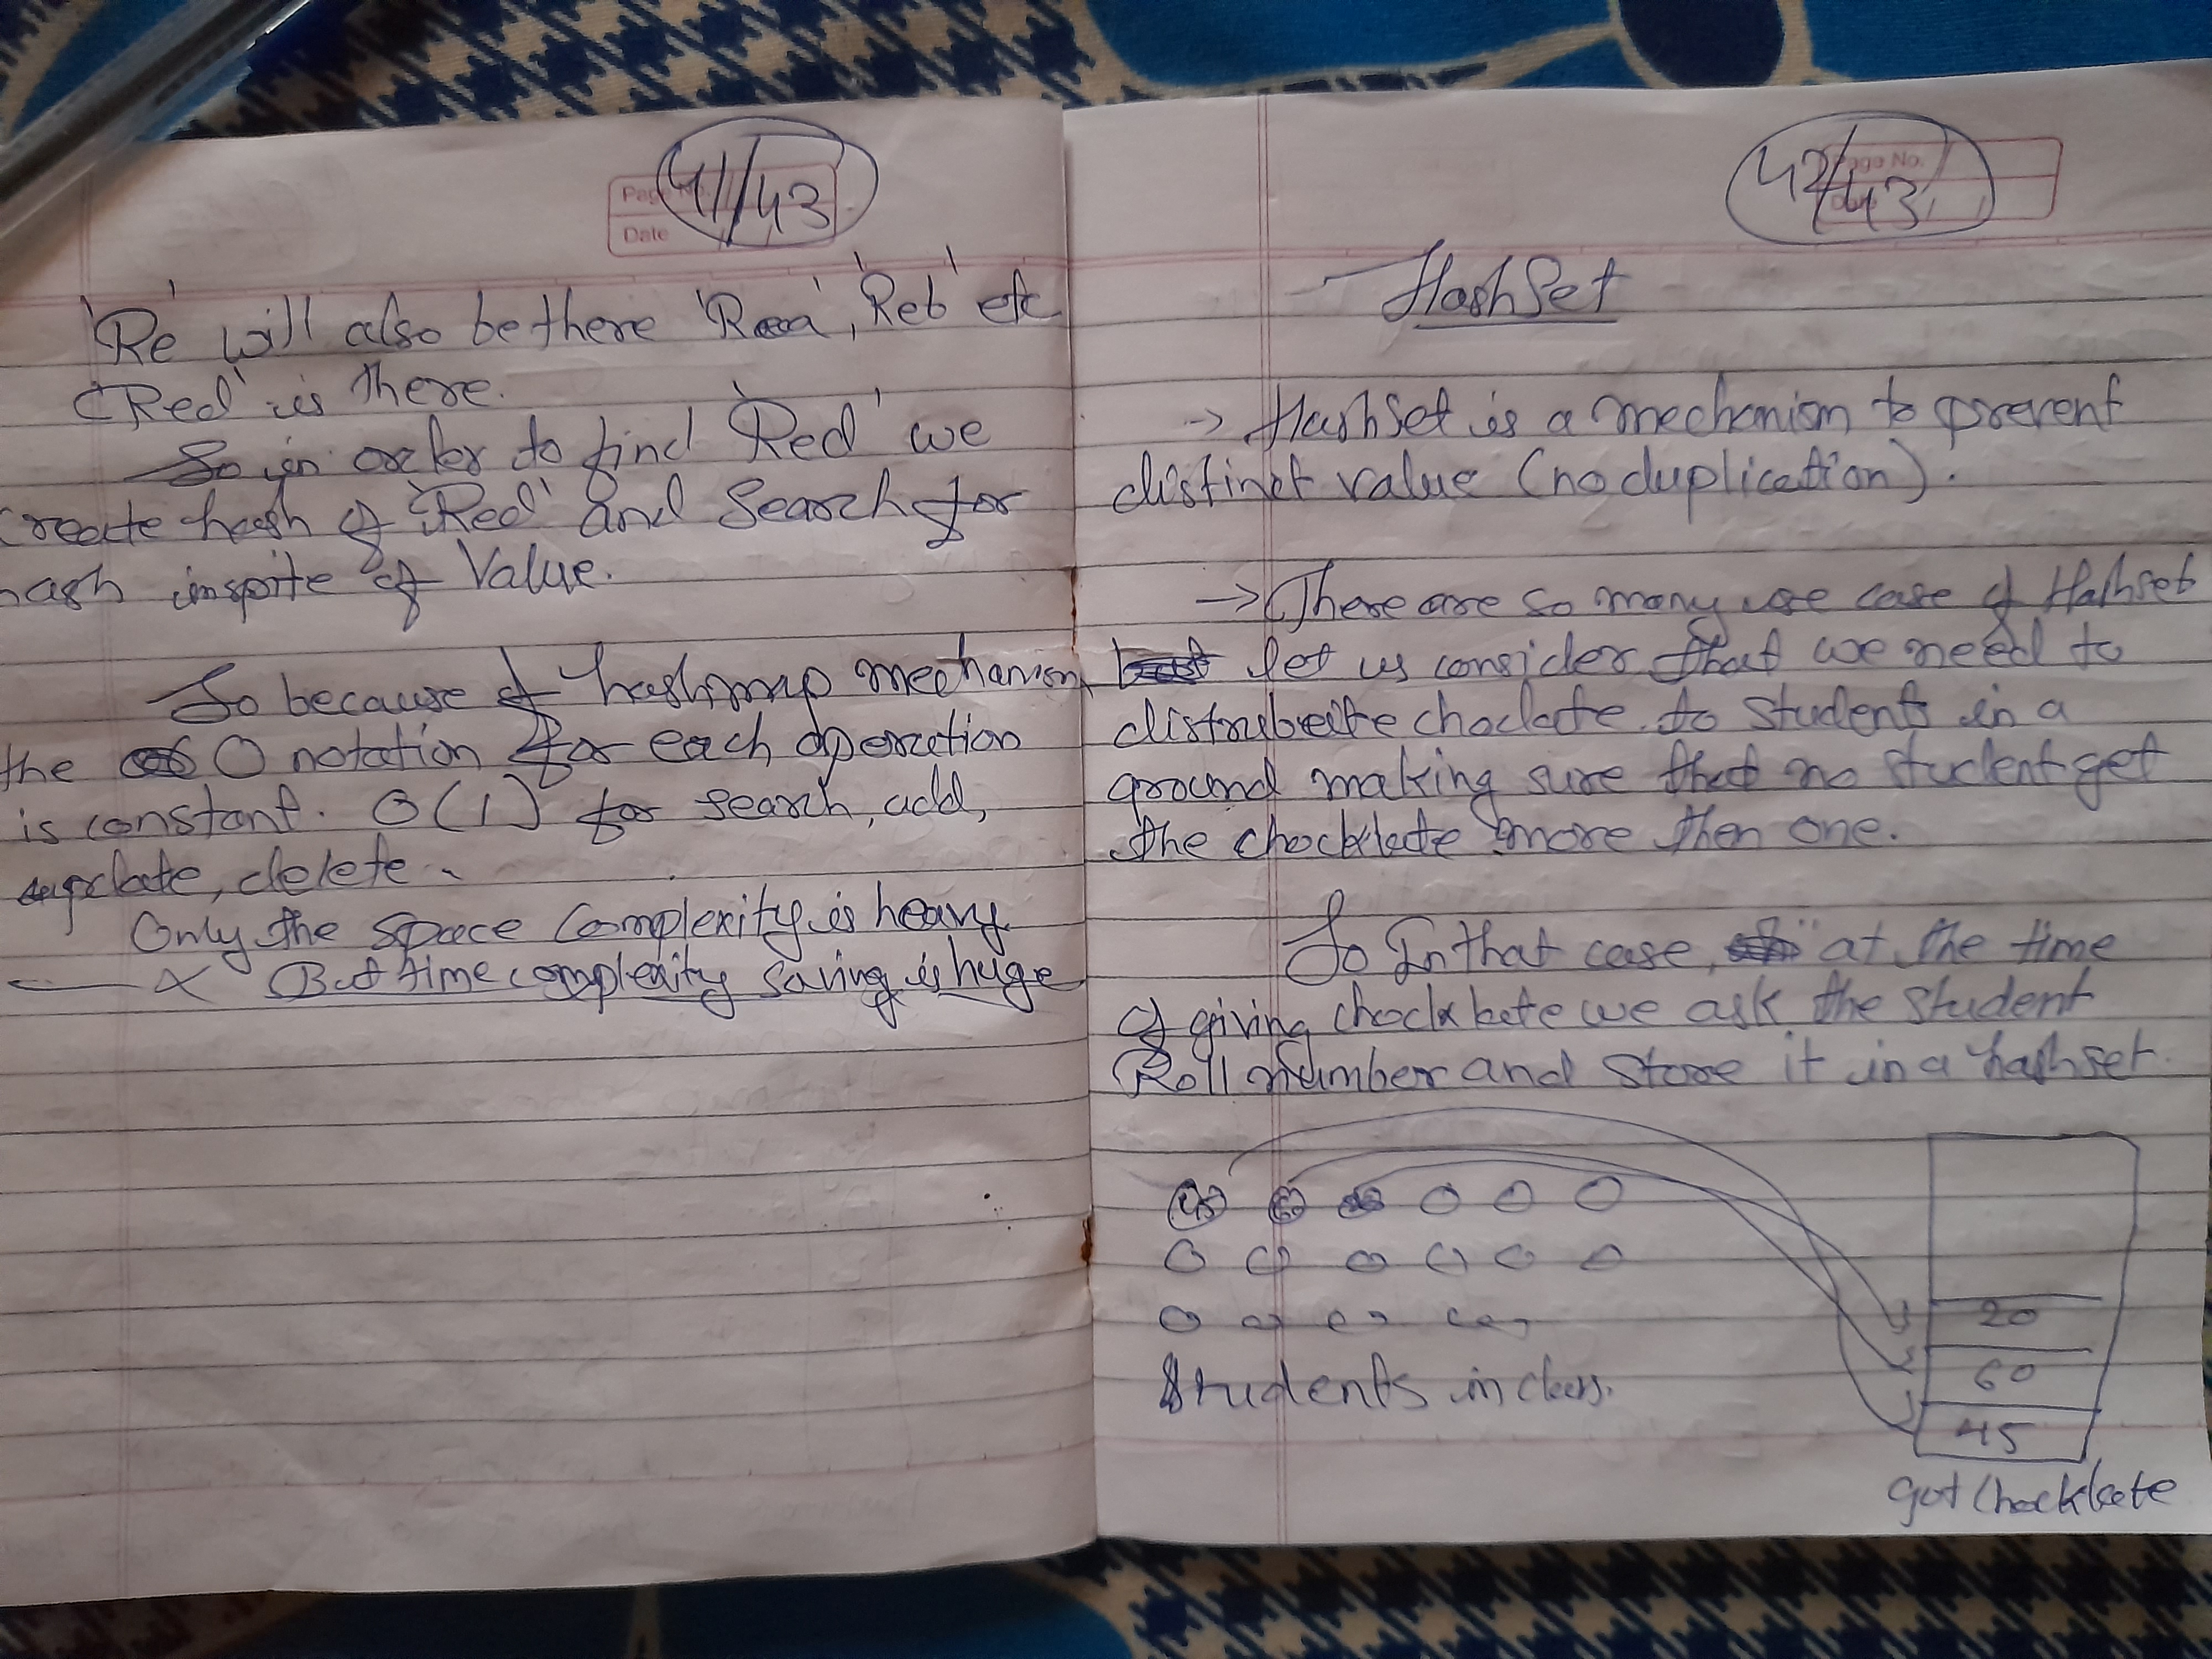 Page No.
Date
41/43
'Re' will also be there 'Rea', 'Reb' etc
'Red' is there.
So in order to find 'Red' we
create hash of 'Red' and Search for
hash inspite of Value.
So because of hashmap mechanism
the O notation for each operation
is constant. O(1) for search, add,
update, delete.
Only the space complexity is heavy
x But time complexity saving is huge
Page No.
42/43
HashSet
-> HashSet is a mechanism to prevent
distinct value (no duplication).
-> There are so many use case of Hashset
let us consider that we need to
distrubute choclate to students in a
ground making sure that no student get
the chocklate more then one.
So In that case, at the time
of giving chocklate we ask the student
Roll number and store it in a hashset.
45 60
20
60
45
Students in class.
got chocklate